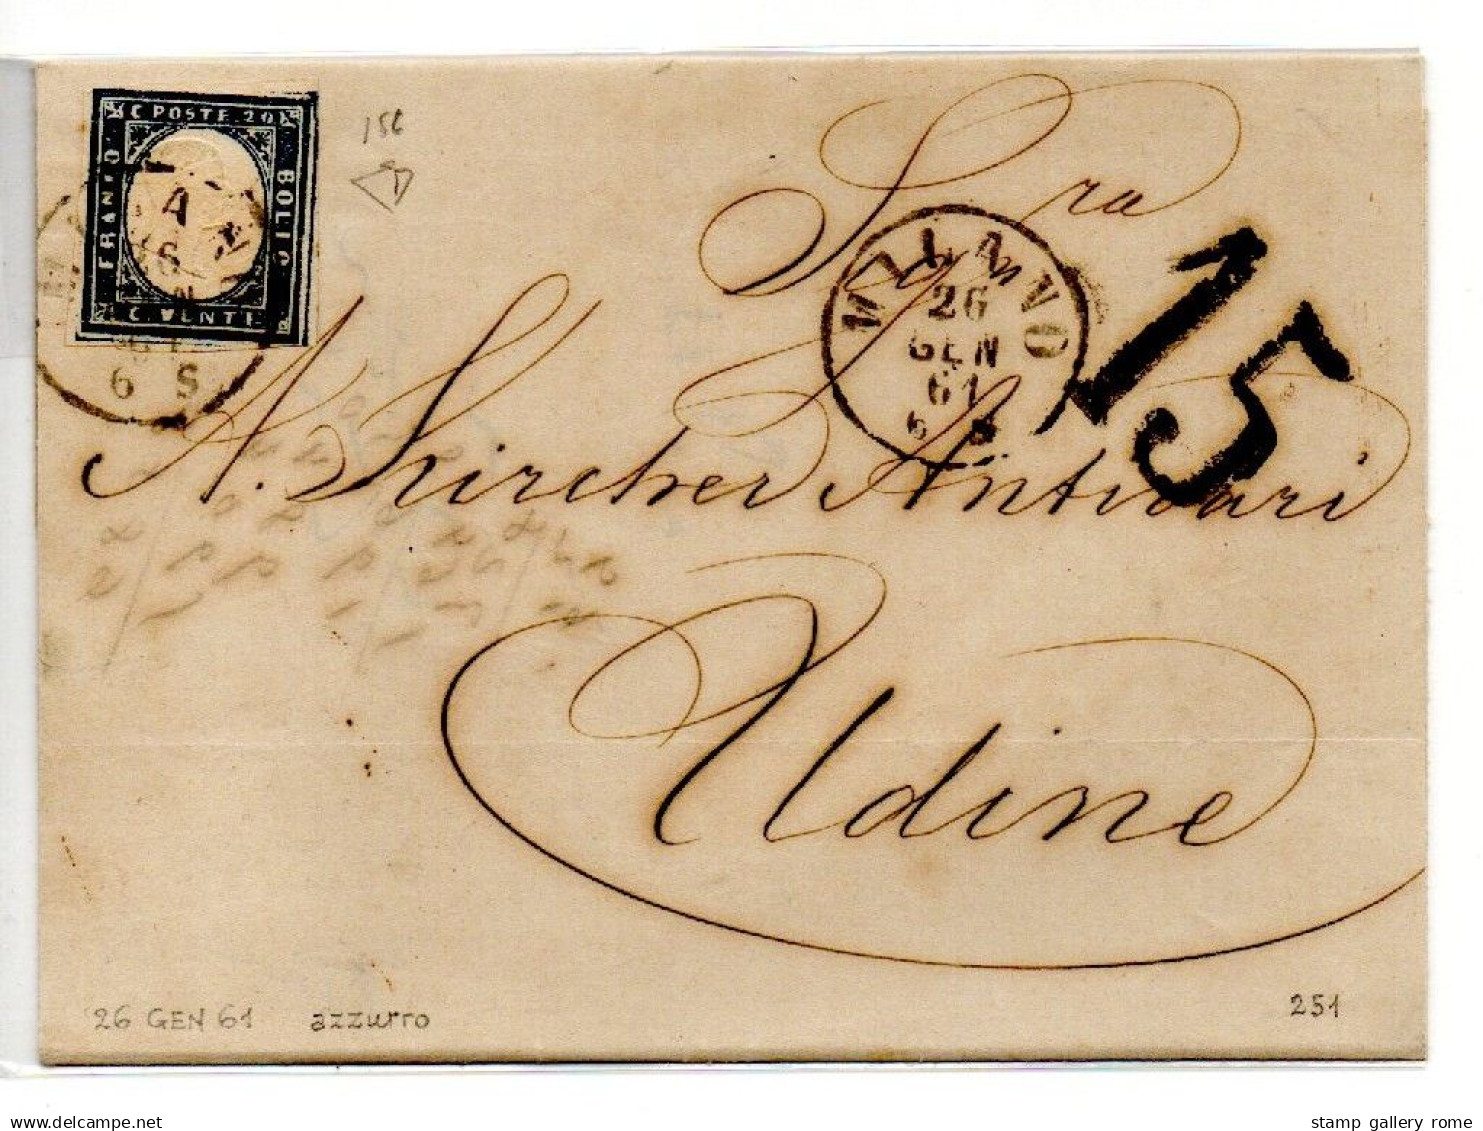 C. POSTE 20
FRANCO
BOLLO
C. VENTI
6 S
15C
Sra
MILANO
26
GEN
61
6 S
15
A. Kircher Antivari
Udine
26 GEN 61 azzurro
251
stamp gallery rome
delcampe.net